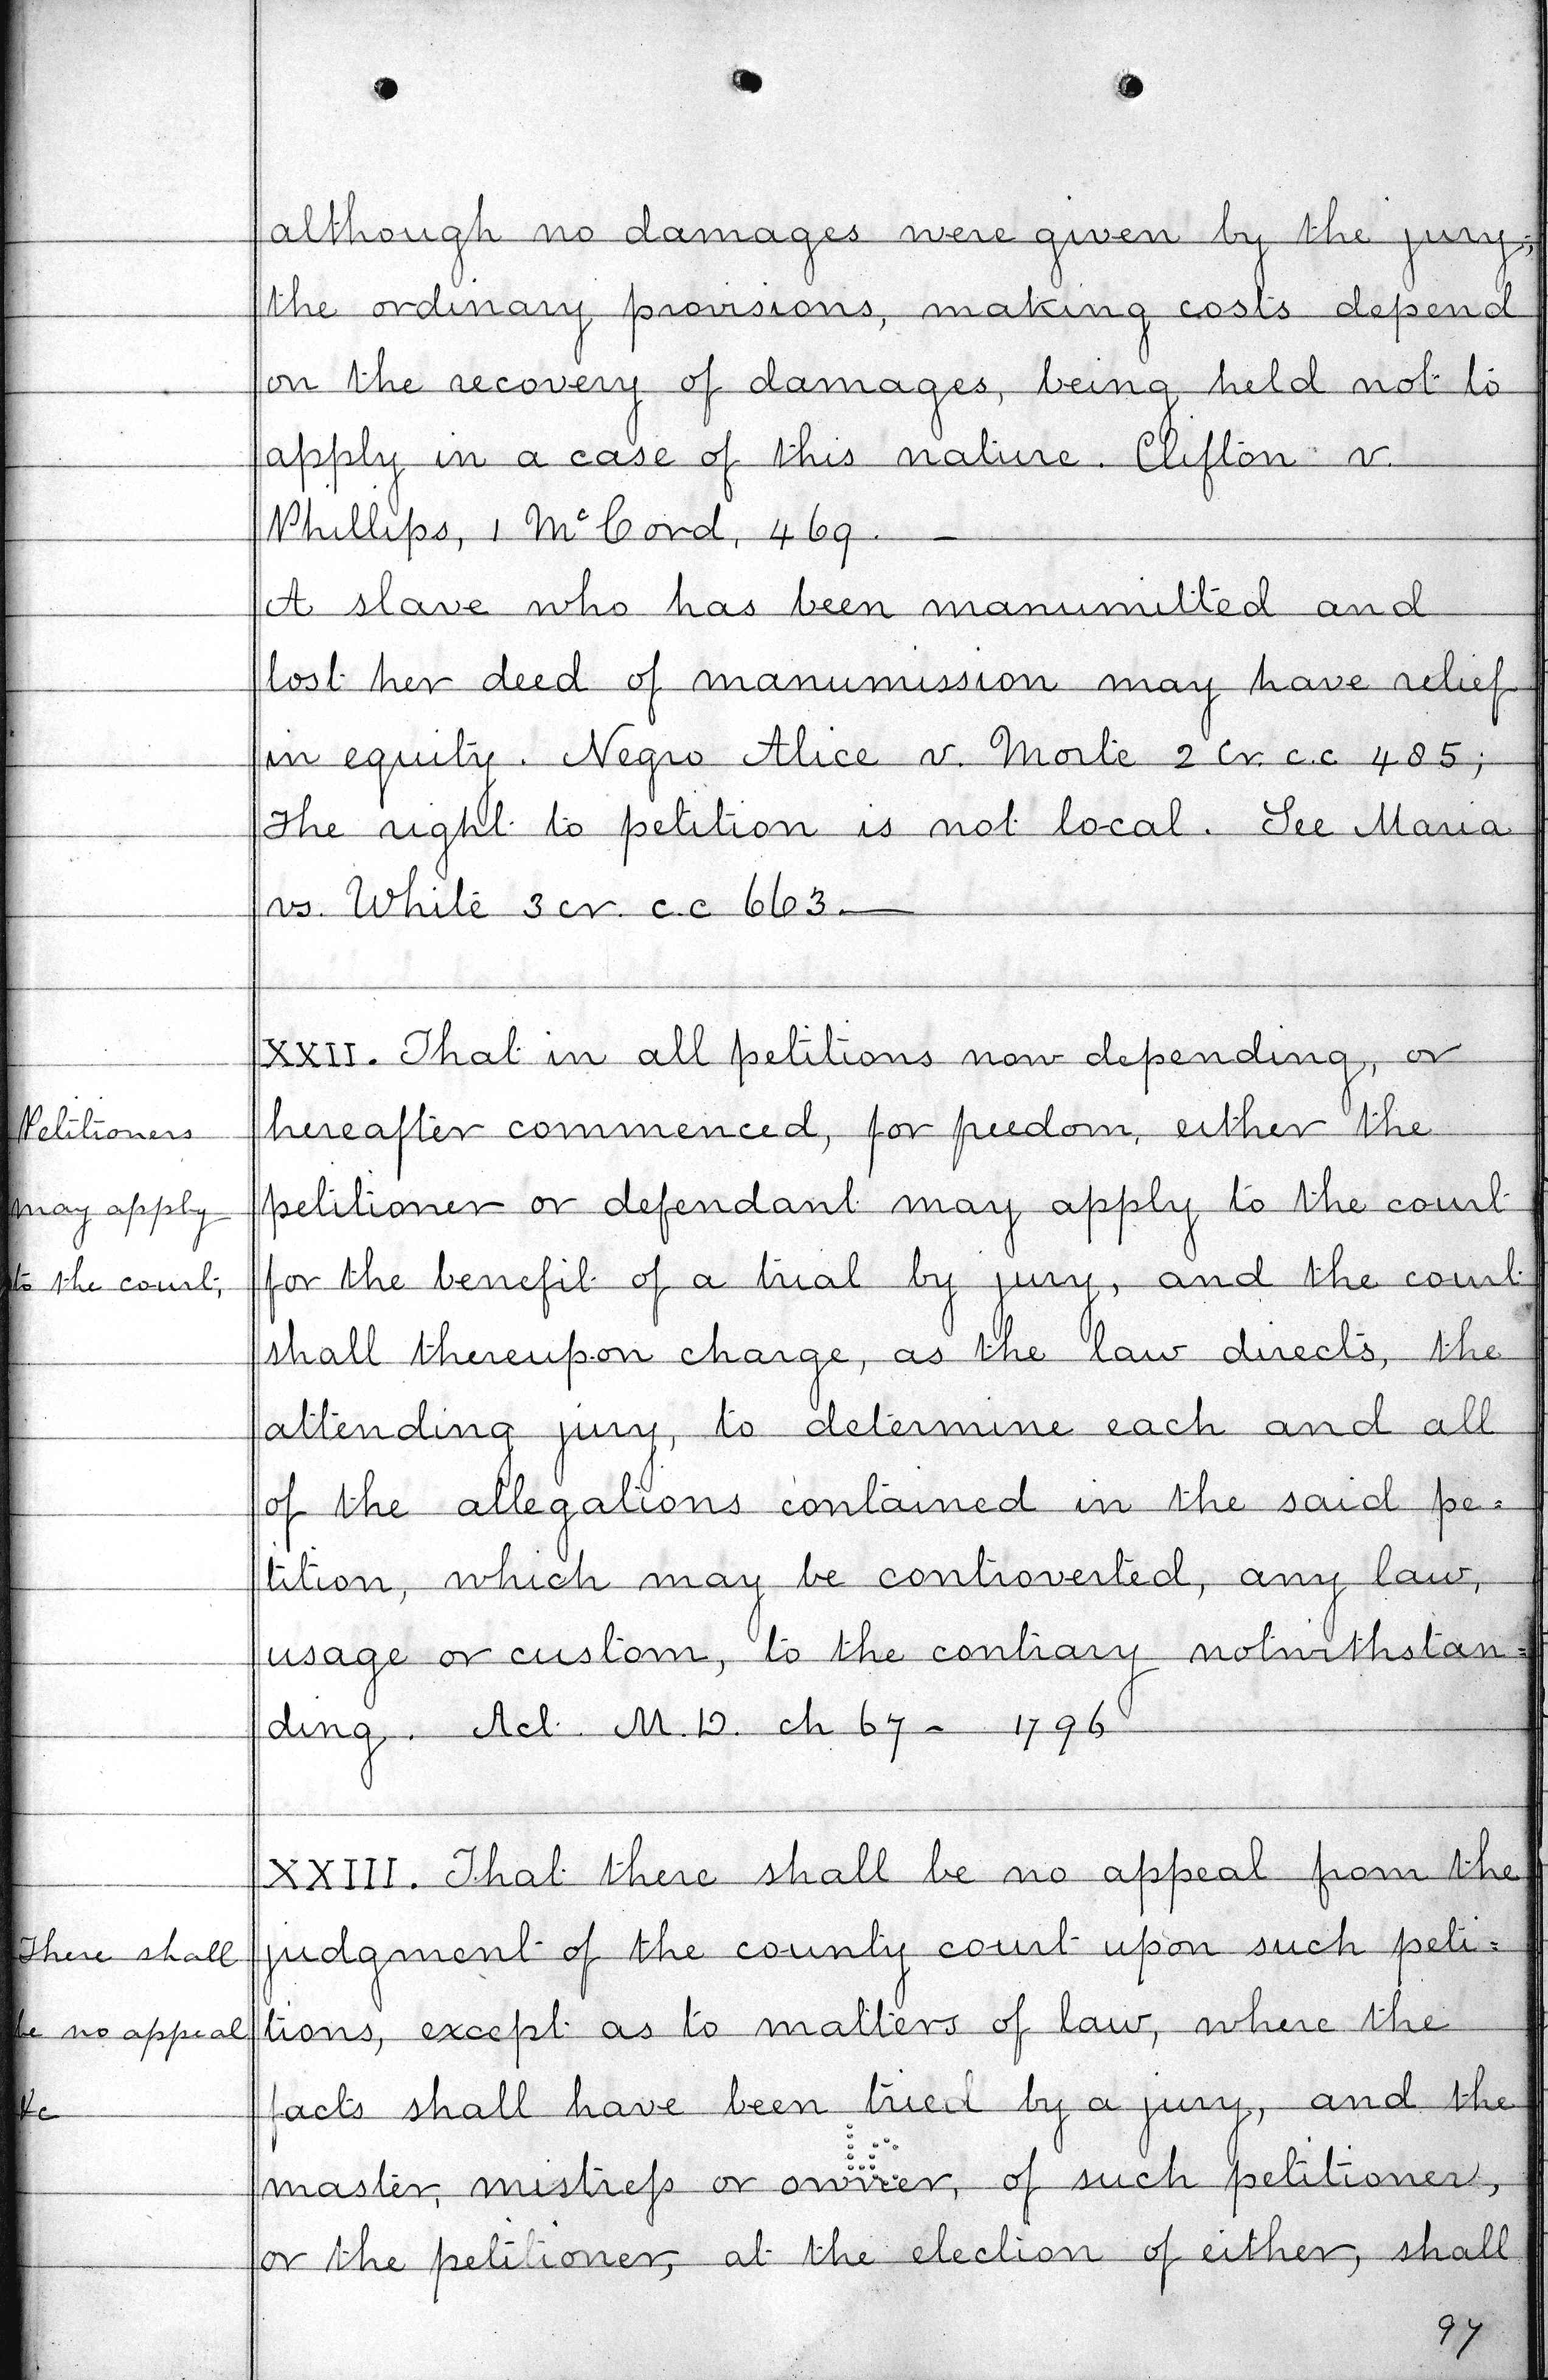 although no damages were given by the jury;
the ordinary provisions, making costs depend
on the recovery of damages, being held not to
apply in a case of this nature. Clifton v.
Phillips, 1 McCord, 469. —
A slave who has been manumitted and
lost her deed of manumission may have relief
in equity. Negro Alice v. Morte 2 Cr. c.c 485;
The right to petition is not local. See Maria
vs. White 3 cr. c.c 663.—
XXII. That in all petitions now depending, or
Petitioners
hereafter commenced, for freedom, either the
may apply
petitioner or defendant may apply to the court
to the court,
for the benefit of a trial by jury, and the court
shall thereupon charge, as the law directs, the
attending jury, to determine each and all
of the allegations contained in the said pe=
tition, which may be controverted, any law,
usage or custom, to the contrary notwithstan=
ding. Act. M.D. ch 67 - 1796
XXIII. That there shall be no appeal from the
There shall
judgment of the county court upon such peti=
be no appeal
tions, except as to matters of law, where the
&c
facts shall have been tried by a jury, and the
master, mistress or owner, of such petitioner,
or the petitioner, at the election of either, shall
97